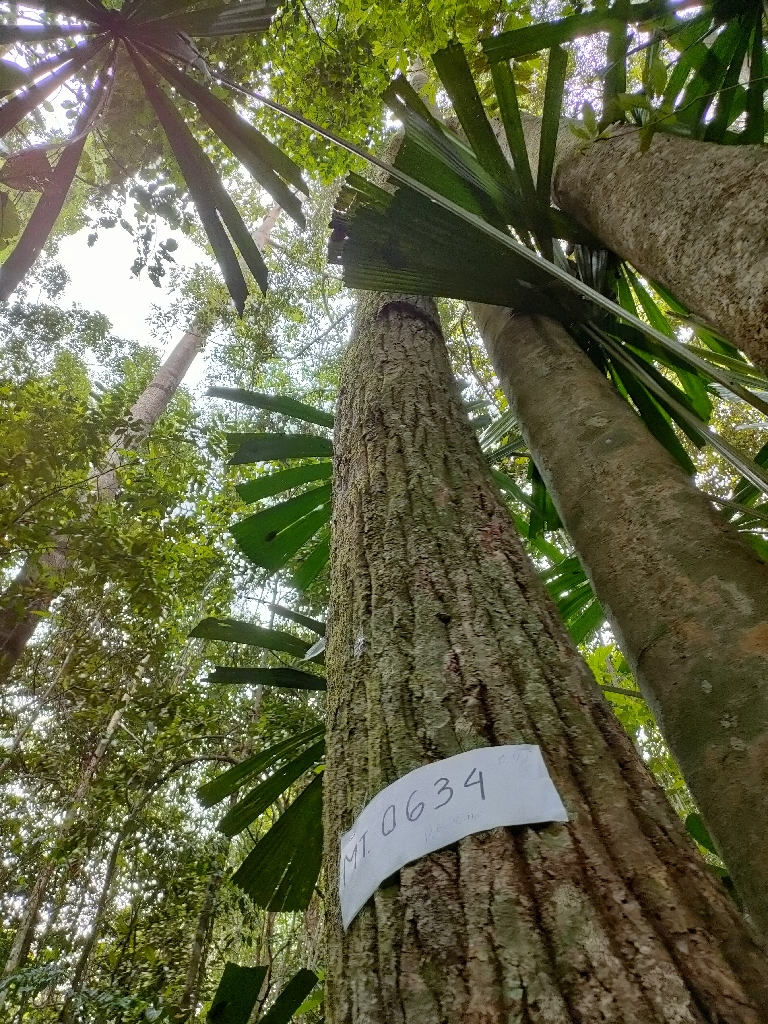 MT. 0634